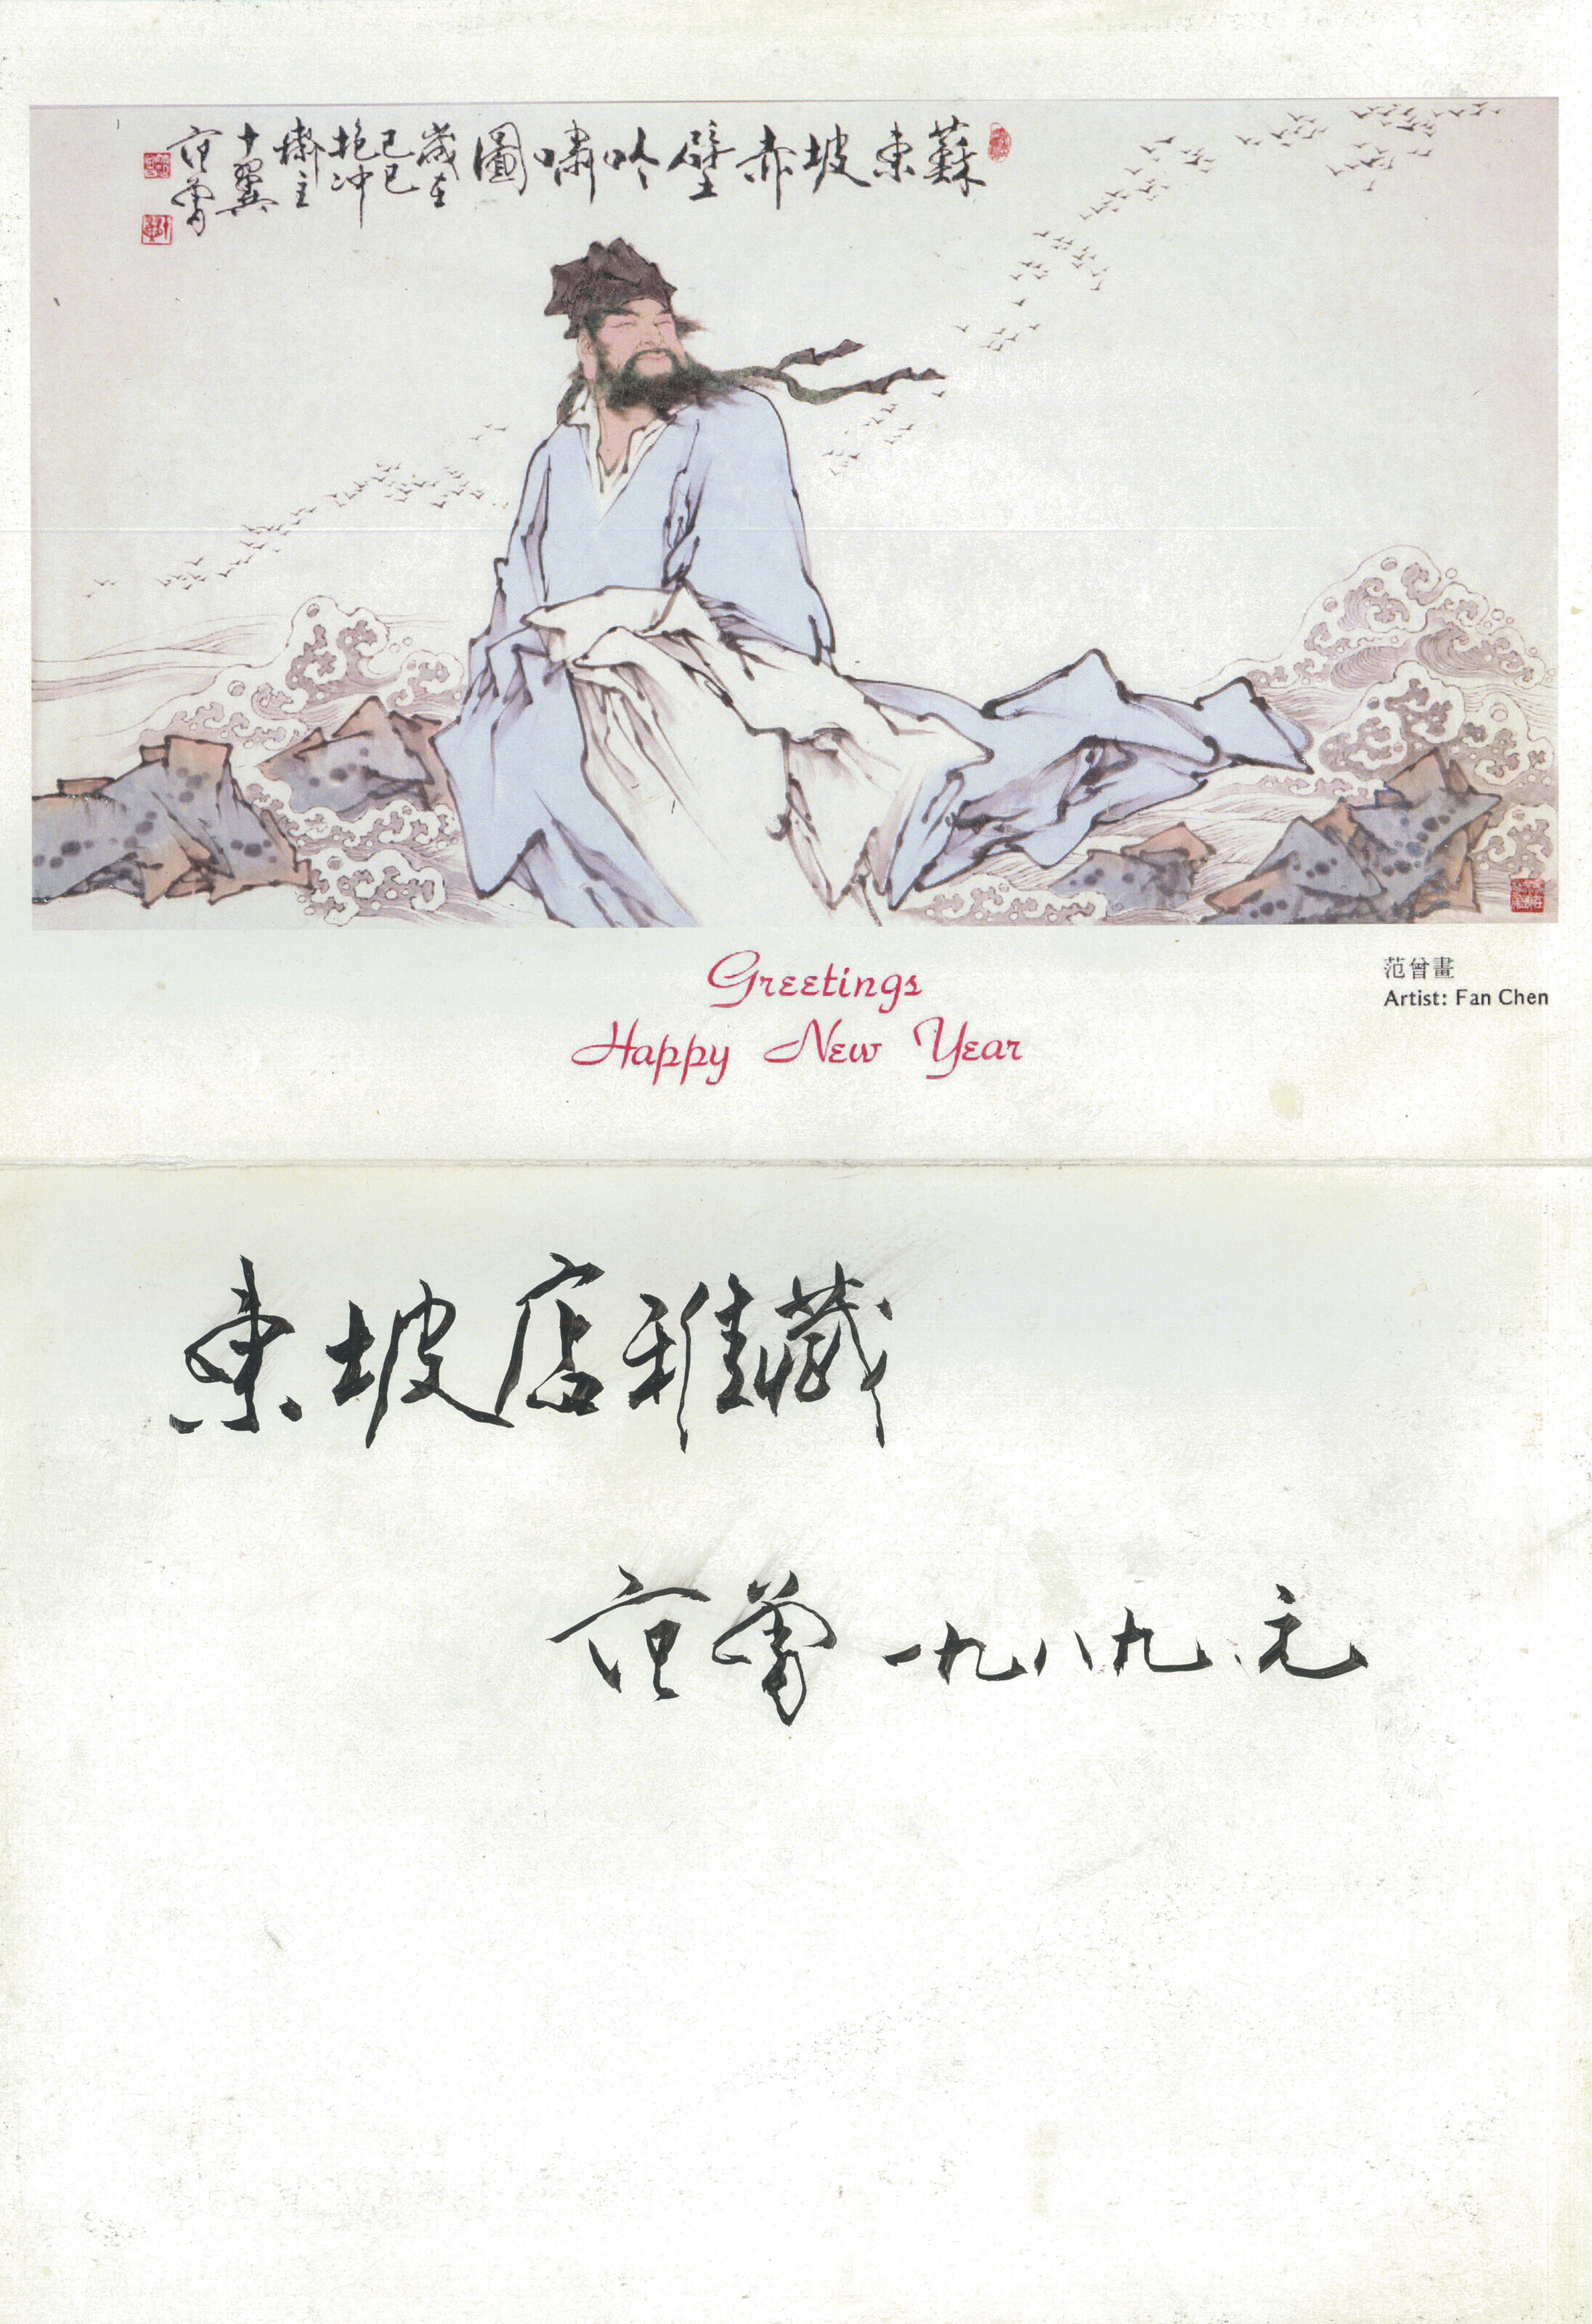 蘇東坡赤壁吟嘯圖
歲在
己巳
抱冲
齋主
十翼
范曾
Greetings
Happy New Year
范曾畫
Artist: Fan Chen
東坡店雅藏
范曾 一九八九、元